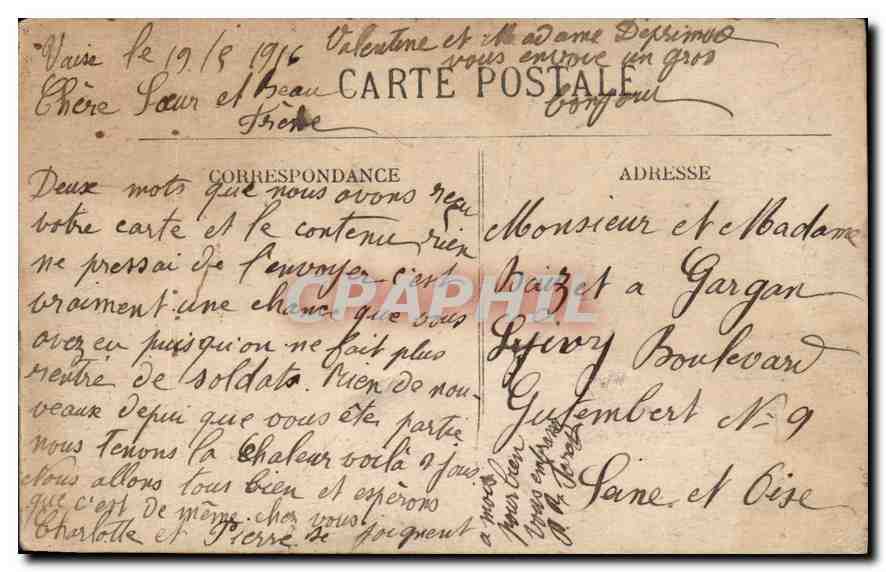 Vaise le 19/5 1916
Valentine et Madame Deprimoz
vous envoie un gros
bonjour
CARTE POSTALE
Chère Sœur et beau
Frère
CORRESPONDANCE
Deux mots que nous avons reçu
votre carte et le contenu rien
ne pressai de l'envoyer c'est
vraiment une chance que vous
avez eu puisqu'on ne fait plus
rentré de soldats. Rien de nou-
veaux depui que vous ête partie
nous tenons la chaleur voilà 2 jours
Nous allons tous bien et espèrons
que c'est de même chez vous
Charlotte et Pierre se joignent
a moi
pour bien
vous embrasser
ADRESSE
Monsieur et Madame
Baizet a Gargan
Livry Boulevard
Gutembert N° 9
Seine et Oise
CPAPHIL